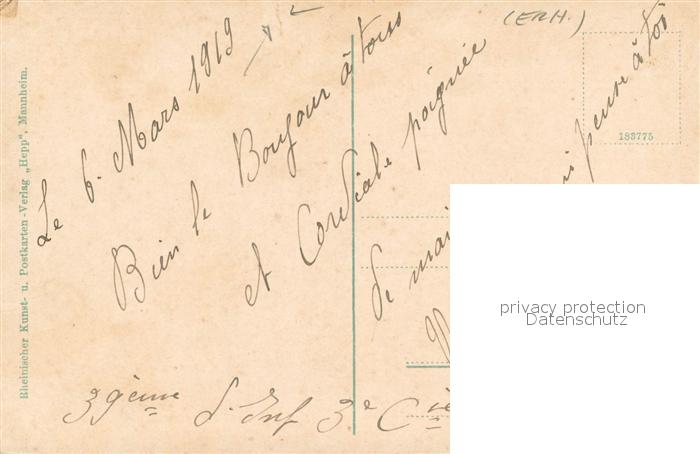 Le 6. Mars 1919
Bien le Bonjour à tous
et Cordiale poignée
de mai
pense à toi
39ème d'Inf 3e Cie
(ERH.)
183775
Rheinischer Kunst- u. Postkarten-Verlag „Hepp", Mannheim.
privacy protection
Datenschutz